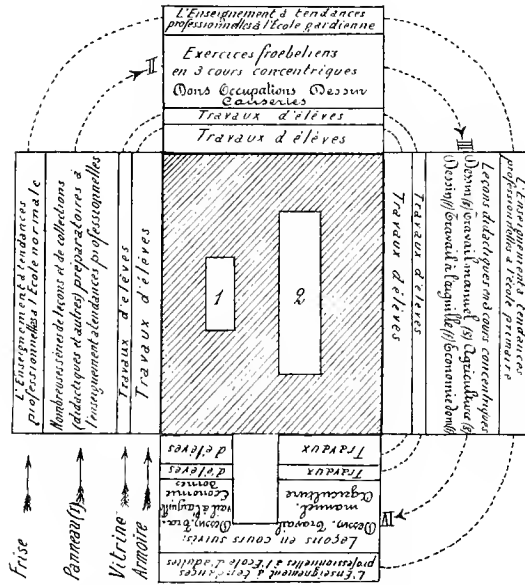 L'Enseignement à tendances
professionnelles à l'École gardienne
II
Exercices froebeliens
en 3 cours concentriques
Dons Occupations Dessin
Causeries
Travaux d'élèves
Travaux d'élèves
L'Enseignement à tendances
professionnelles à l'Ecole normale
I
Nombreuses séries de leçons et de collections
(didactiques et autres) préparatoires à
l'enseignement à tendances professionnelles
Travaux d'élèves
Travaux d'élèves
1
2
Travaux d'élèves
Travaux d'élèves
III
Leçons didactiques en 3 cours concentriques
Dessin (g) Travail manuel (g) Agriculture (g)
Dessin (f) Travail à l'aiguille (f) Économie dom (f)
L'Enseignement à tendances
professionnelles à l'école primaire
Travaux
d'élèves
Travaux
d'élèves
IV
Dessin. Travail
manuel.
Agriculture
Dessin. Tra-
vail à l'aiguille
Économie
domes
Leçons en cours suivis:
L'Enseignement à tendances
professionnelles à l'École d'adultes
Frise
Panneau (1)
Vitrine
Armoire